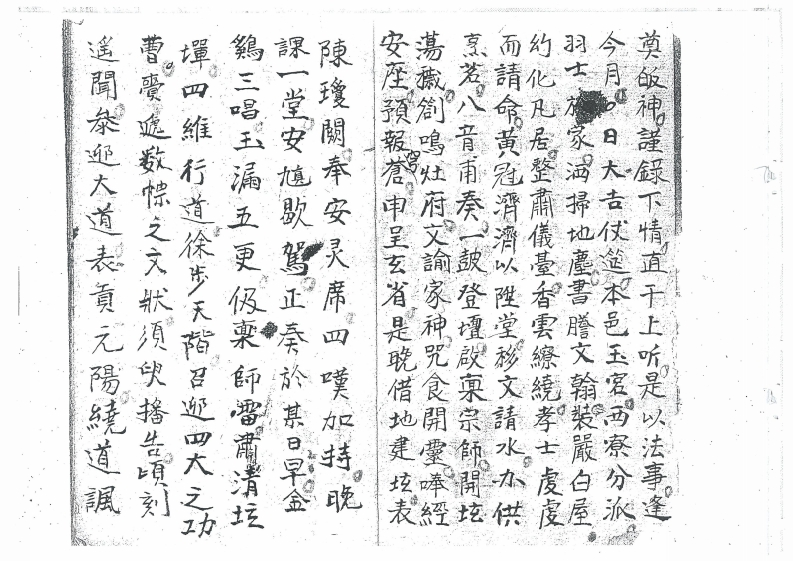 奠皈神謹錄下情直干上听是以法事逢
今月日大吉仗筵本邑玉宮西寮分派
羽士家洒掃地塵書謄文翰裝嚴白屋
約化凡居整肅儀臺香雲繚繞孝士虔虔
而請命黃冠濟濟以陞堂移文請水㐹供
烹茗八音甫奏一鼓登壇啟稟宗師開坛
蕩穢劍鳴灶府文諭家神咒食開靈啤經
安座預報蒼申呈玄省是晚借地建坛表
陳瓊闕奉安灵席四嘆加持晚
課一堂安爐歇駕正奏於某日早金
鷄三唱玉漏五更伋稟師雷肅清坛
墠四維行道徐步天階召迎四大之功
曹賫遞数幖之文狀須臾播告頃刻
遥聞叅迎大道表貢元陽繞道諷